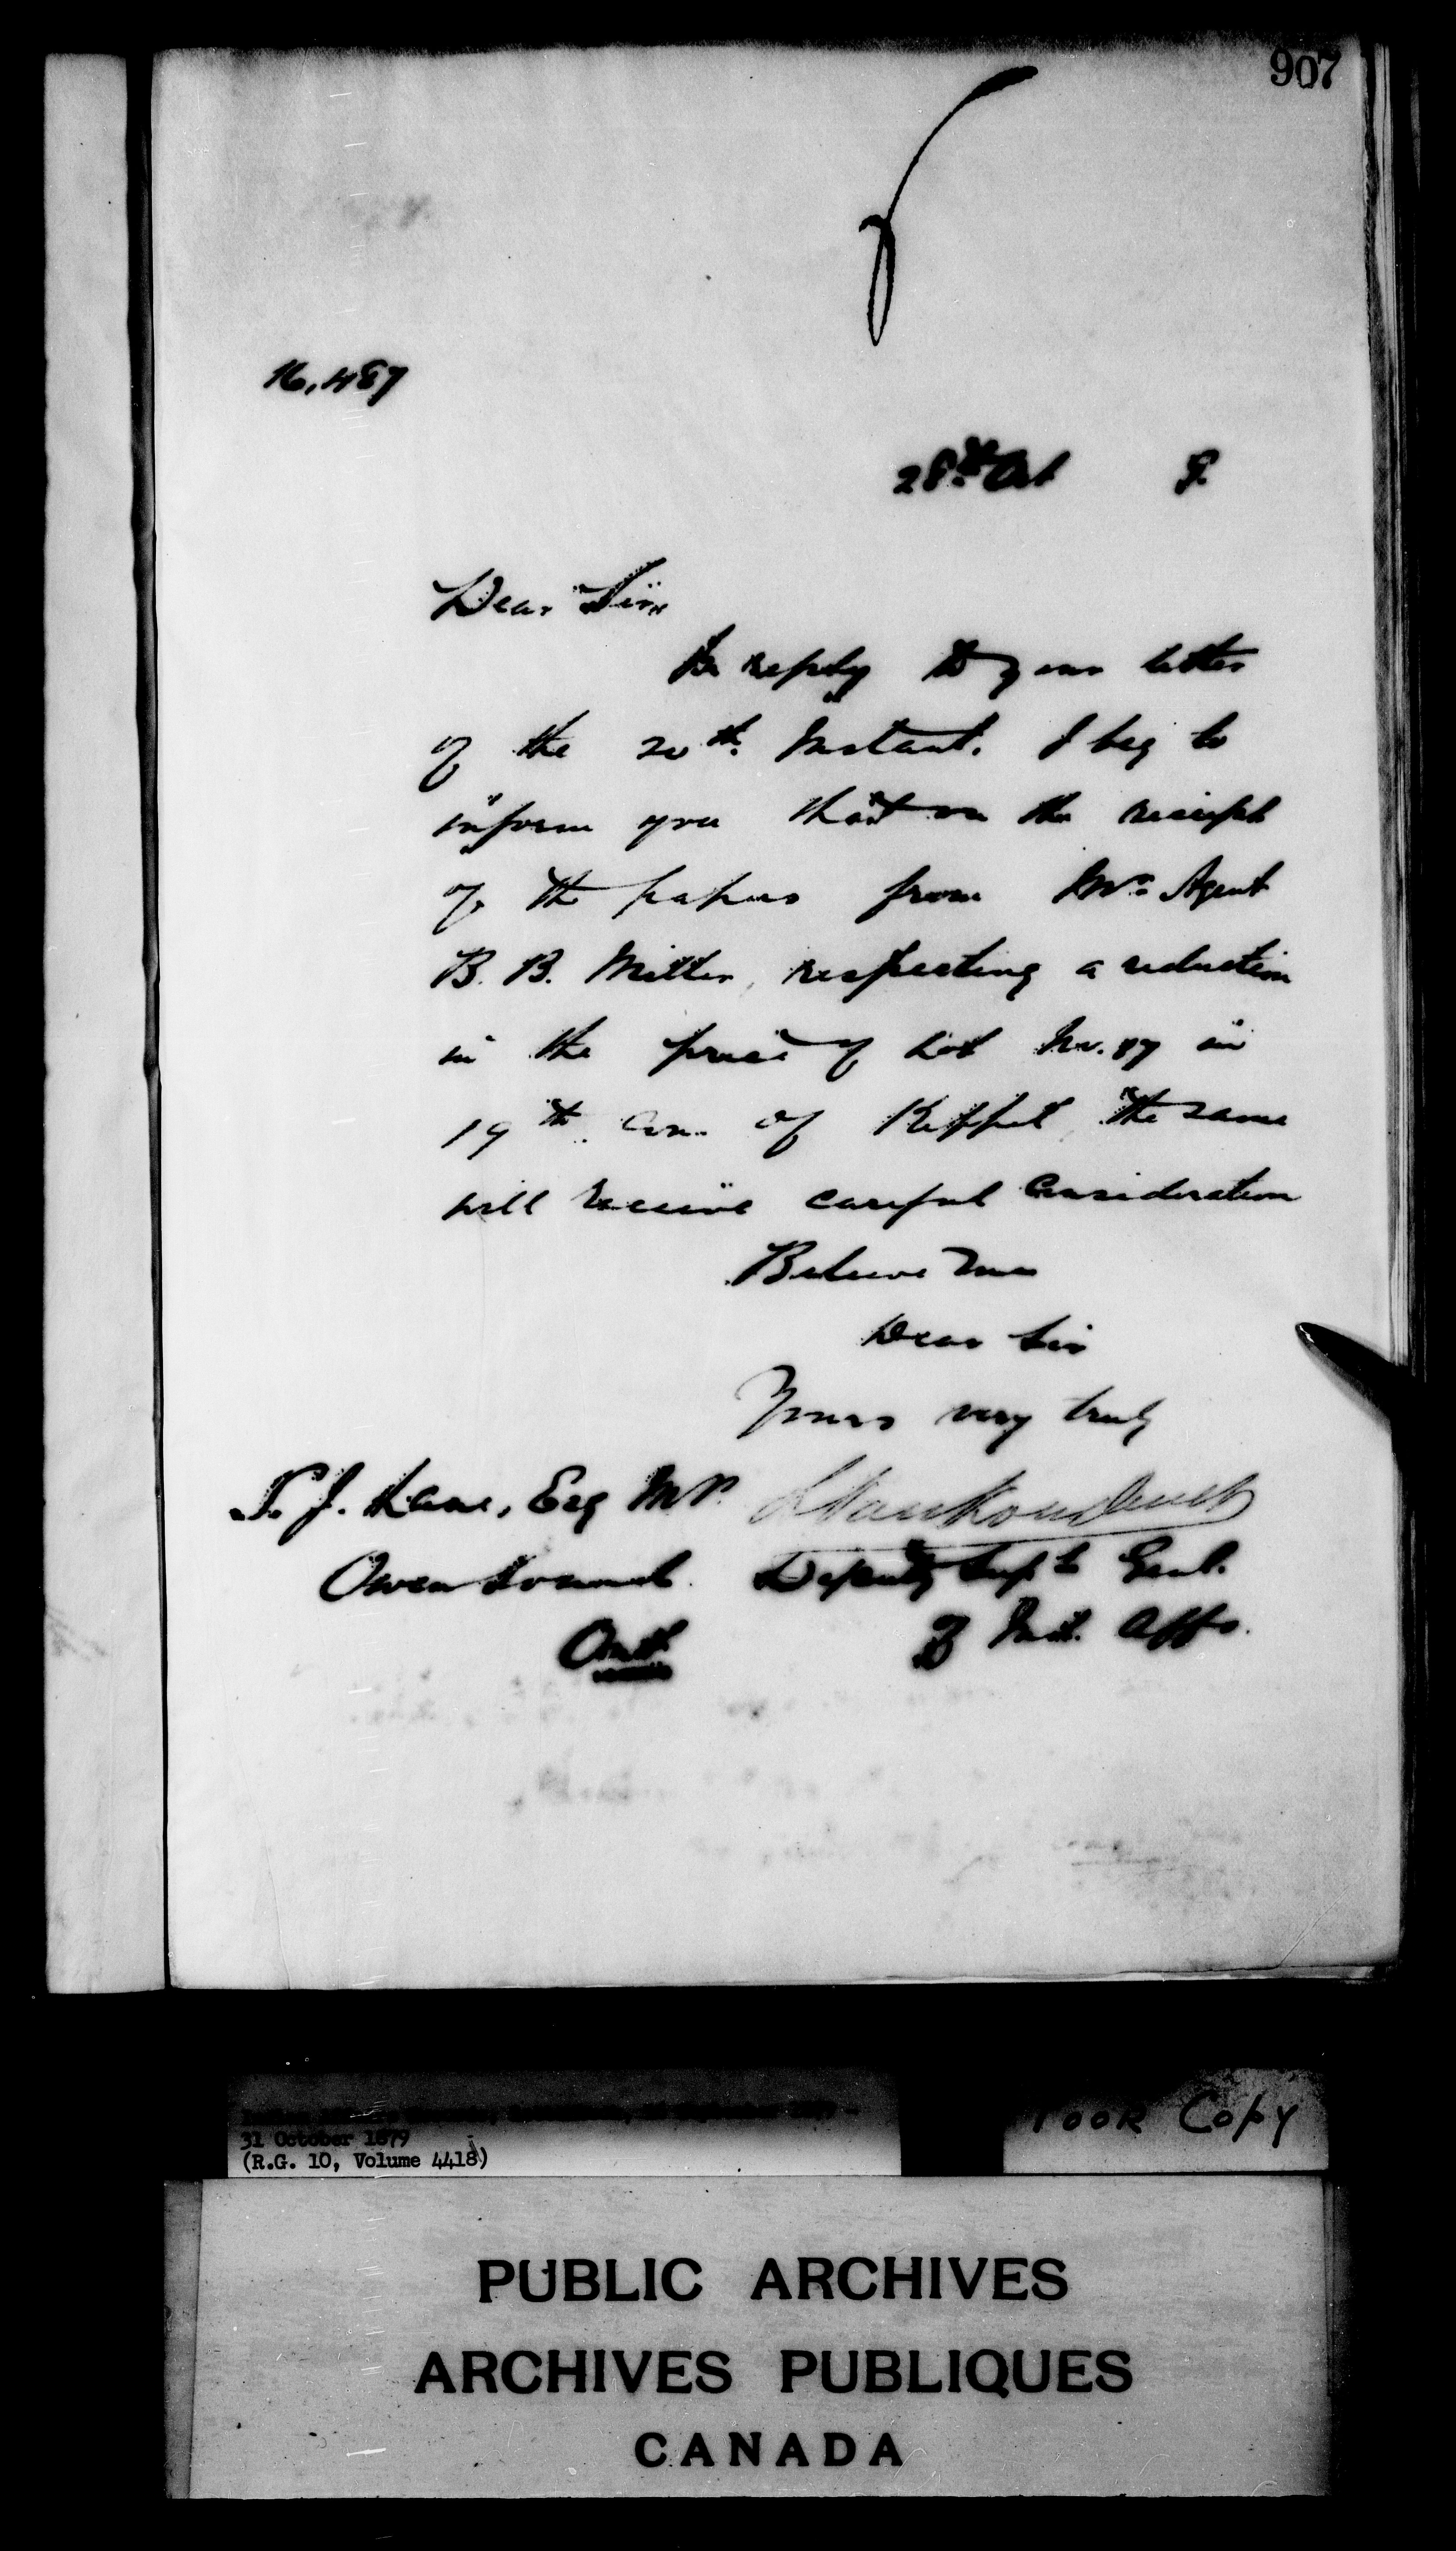 907
16,487
28th Oct 9.
Dear Sir,
In reply to your letter
of the 20th Instant. I beg to
inform you that on the receipt
of the papers from Mr. Agent
B. B. Miller, respecting a reduction
in the price of Lot No. 87 in
19th Con. of Keppel, the same
will receive careful Consideration
Believe me
Dear Sir
Yours very truly
T. J. Lane, Esq MP. L Vankoughnet
Owen Sound. Deputy Supt Genl.
Ont. of Ind. Affs.
31 October 1879
(R.G. 10, Volume 4418)
Copy
PUBLIC ARCHIVES
ARCHIVES PUBLIQUES
CANADA